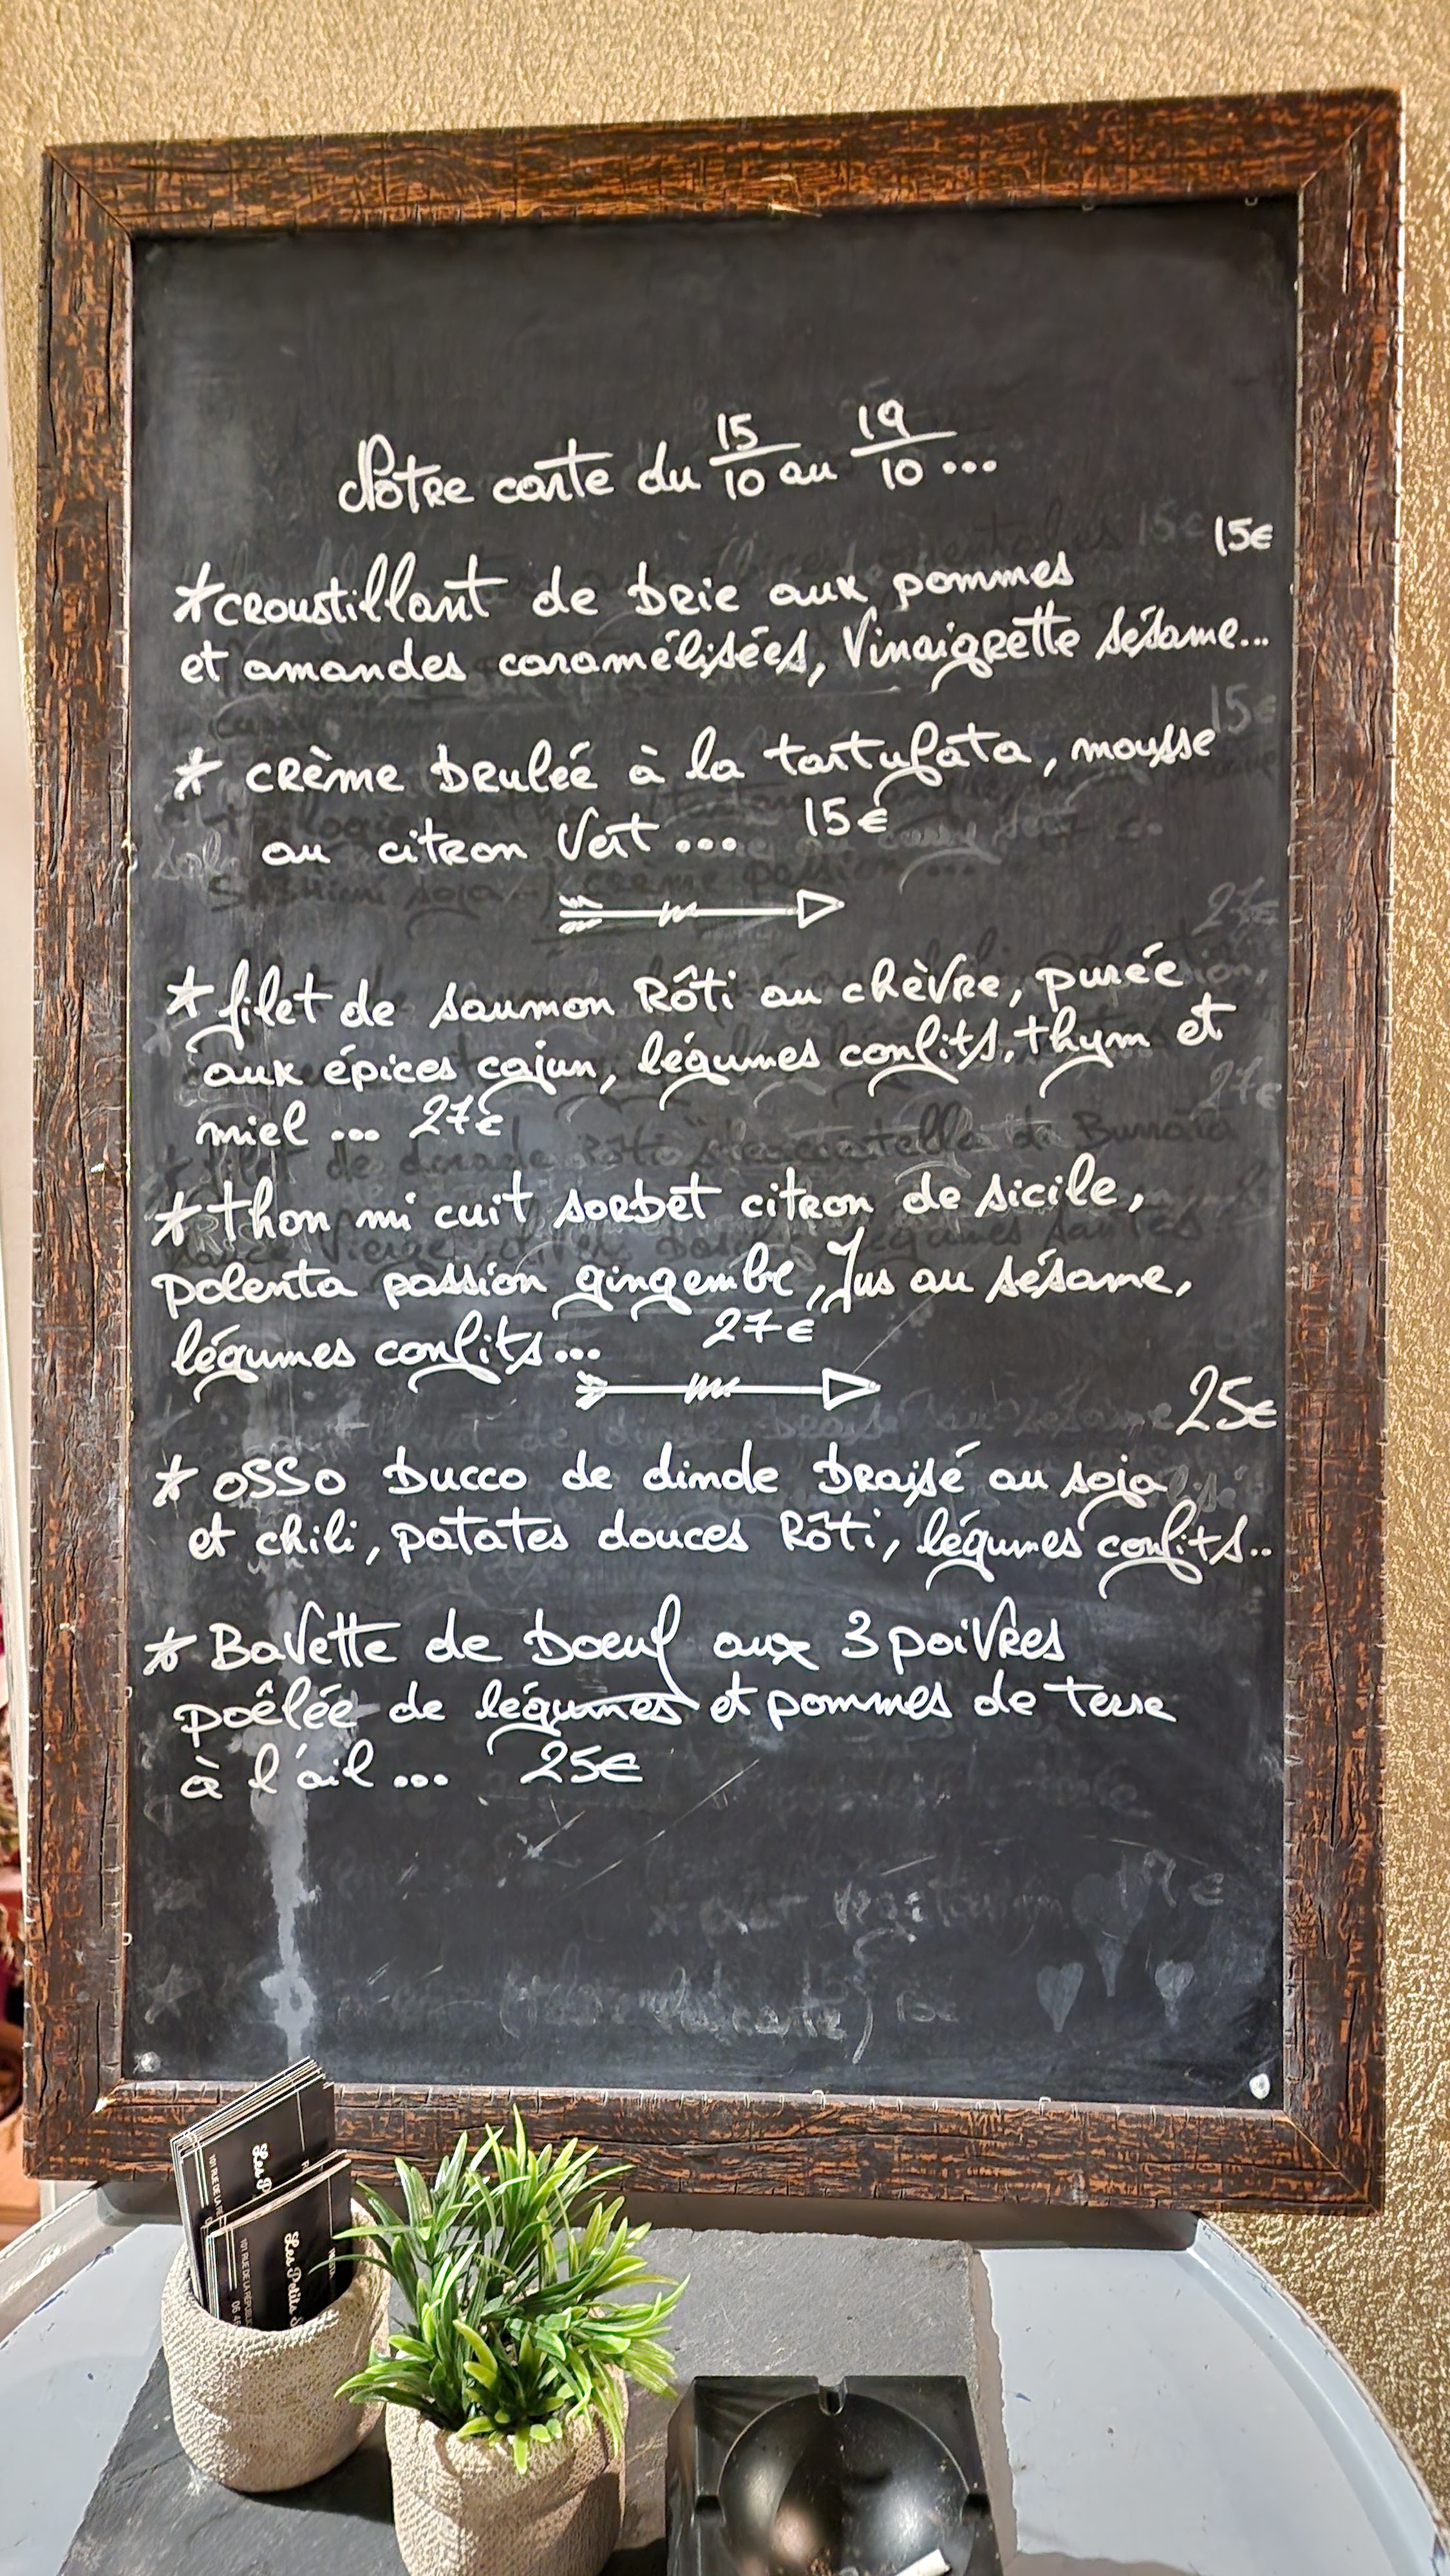 Notre carte du 15/10 au 19/10 ...
15€
* croustillant de brie aux pommes
et amandes caramélisées, Vinaigrette sésame...
* crème brulée à la tartufata, mousse
au citron Vert ... 15€
* filet de saumon Rôti au chèvre, purée
aux épices cajun, légumes confits, thym et
miel ... 27€
* thon mi cuit sorbet citron de sicile,
polenta passion gingembre, Jus au sésame,
légumes confits... 27€
25€
* osso bucco de dinde braisé au soja
et chili, patates douces Rôti, légumes confits..
* Bavette de boeuf aux 3 poivres
poêlée de légumes et pommes de terre
à l'ail ... 25€
Les P
Les Petits
101 RUE DE LA